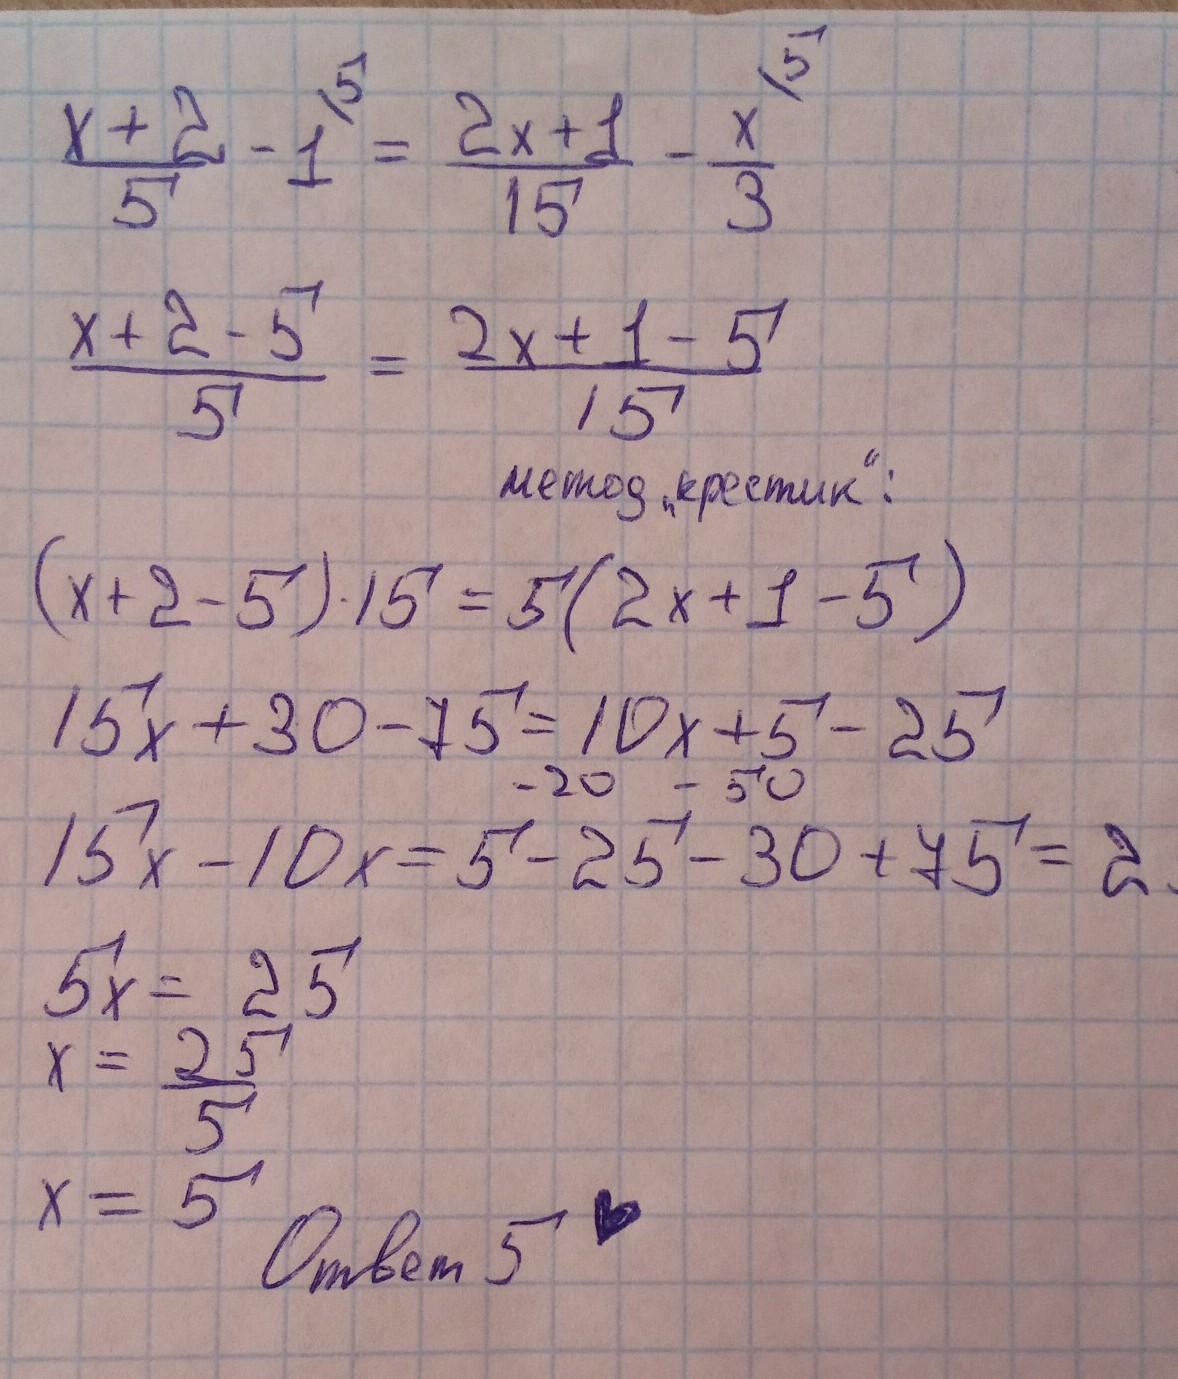 (x+2)/5 - 1^{/5} = (2x+1)/15 - x^{/5}/3
(x+2-5)/5 = (2x+1-5)/15
метод „крестик“:
(x+2-5)·15=5(2x+1-5)
15x+30-75=10x+5-25
-20 -50
15x-10x=5-25-30+75=2
5x= 25
x= 25/5
x= 5
Ответ 5